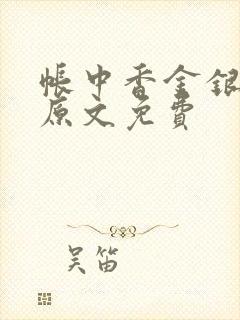 帐中香金银
原文免费
吴笛